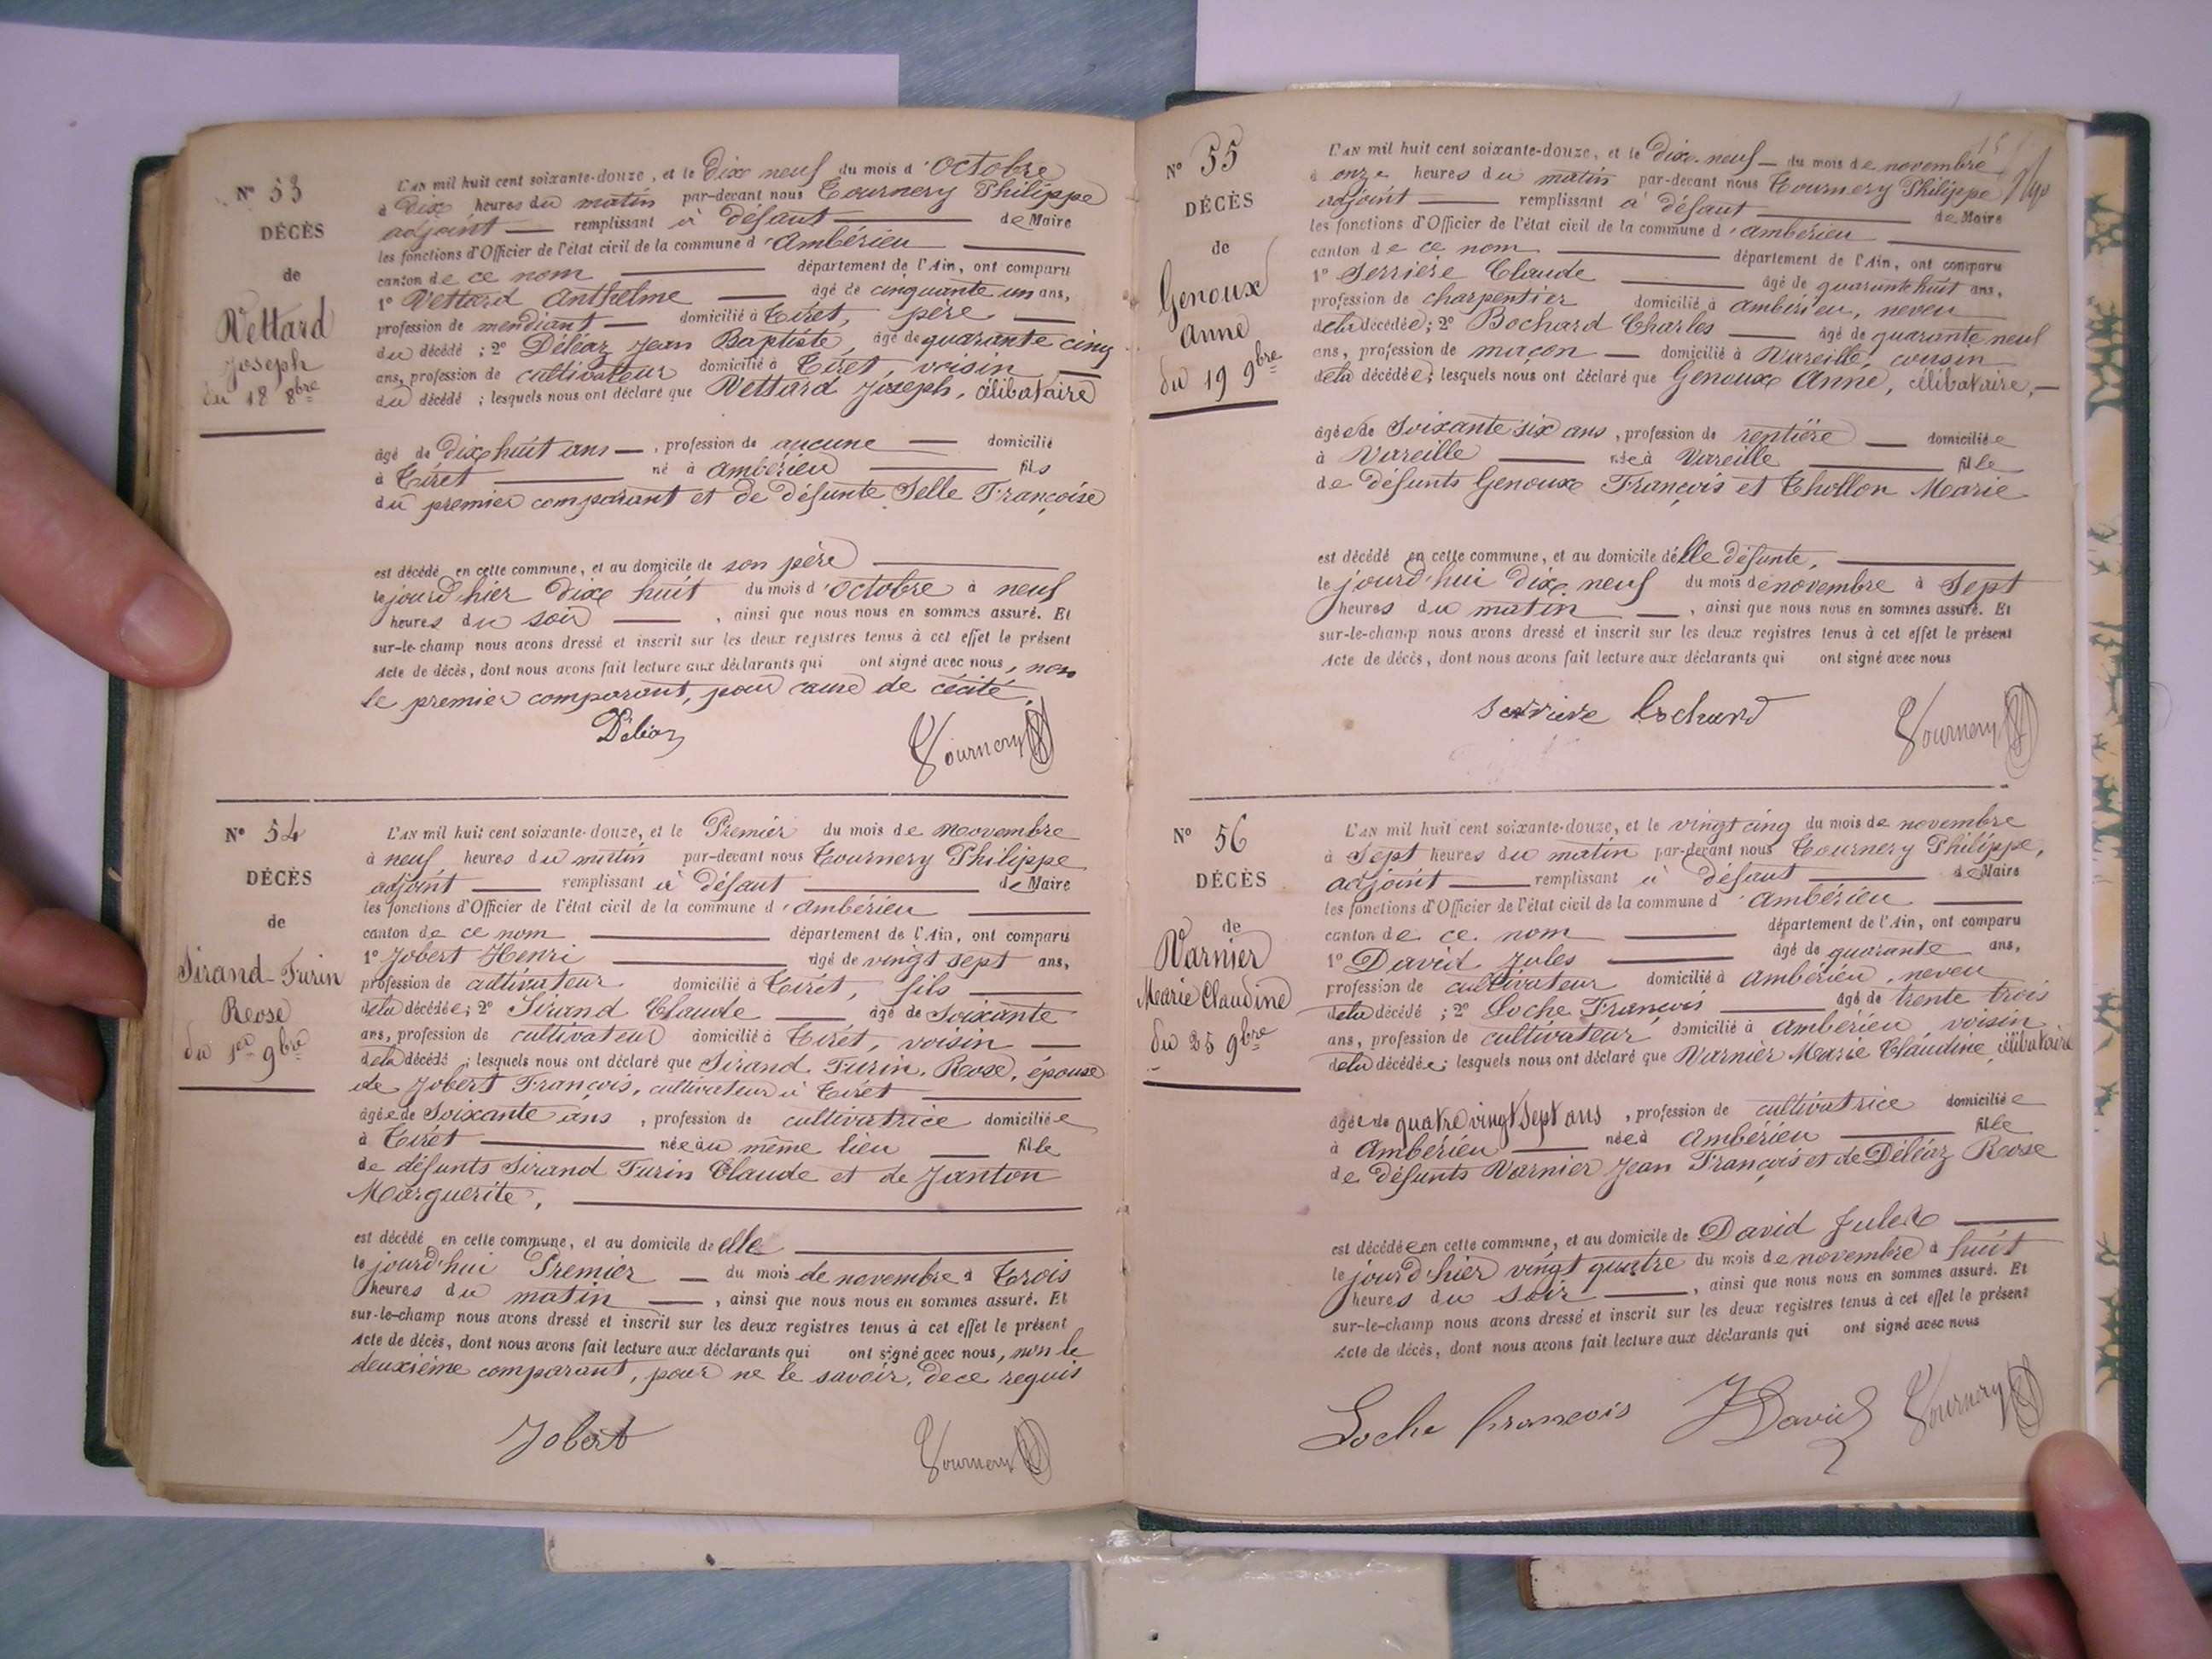 N° 53
DÉCÈS
de
Vettard
Joseph
du 18 8bre
L'AN mil huit cent soixante-douze, et le Dix neuf du mois d'Octobre
à Dix heures du matin par-devant nous Tournery Philippe
adjoint remplissant à défaut de Maire
les fonctions d'Officier de l'état civil de la commune d'Ambérieu
canton de ce nom département de l'Ain, ont comparu
1° Vettard Anthelme âgé de cinquante un ans,
profession de mendiant domicilié à Tiret, père
du décédé ; 2° Déléaz Jean Baptiste, âgé de quarante cinq
ans, profession de cultivateur domicilié à Tiret, voisin
du décédé ; lesquels nous ont déclaré que Vettard Joseph, célibataire
âgé de Dix huit ans, profession de aucune domicilié
à Tiret né à Ambérieu fils
du premier comparant et de défunte Selle Françoise
est décédé en cette commune, et au domicile de son père
le jourd'hier dix huit du mois d'Octobre à neuf
heures du soir, ainsi que nous nous en sommes assuré. Et
sur-le-champ nous avons dressé et inscrit sur les deux registres tenus à cet effet le présent
Acte de décès, dont nous avons fait lecture aux déclarants qui ont signé avec nous, non
le premier comparant, pour cause de cécité.
Déléaz Tournery
N° 54
DÉCÈS
de
Sirand-Turin
Rose
du 1er 9bre
L'AN mil huit cent soixante-douze, et le Premier du mois de Novembre
à neuf heures du matin par-devant nous Tournery Philippe
adjoint remplissant à défaut de Maire
les fonctions d'Officier de l'état civil de la commune d'Ambérieu
canton de ce nom département de l'Ain, ont comparu
1° Jobert Henri âgé de vingt sept ans,
profession de cultivateur domicilié à Tiret, fils
de la décédée ; 2° Sirand Claude âgé de Soixante
ans, profession de cultivateur domicilié à Tiret, voisin
de la décédé ; lesquels nous ont déclaré que Sirand Turin, Rose, épouse
de Jobert François, cultivateur à Tiret
âgée de Soixante ans, profession de cultivatrice domiciliée
à Tiret née au même lieu fille
de défunts Sirand Turin Claude et de Janton
Marguerite,
est décédé en cette commune, et au domicile de elle
le jourd'hui Premier du mois de novembre à Trois
heures du matin, ainsi que nous nous en sommes assuré. Et
sur-le-champ nous avons dressé et inscrit sur les deux registres tenus à cet effet le présent
Acte de décès, dont nous avons fait lecture aux déclarants qui ont signé avec nous, non le
deuxième comparant, pour ne le savoir, de ce requis
Jobert Tournery
N° 55
DÉCÈS
de
Genoux
Anne
du 19 9bre
L'AN mil huit cent soixante-douze, et le Dix-neuf du mois de novembre
à onze heures du matin par-devant nous Tournery Philippe
adjoint remplissant à défaut de Maire
les fonctions d'Officier de l'état civil de la commune d'Ambérieu
canton de ce nom département de l'Ain, ont comparu
1° Serrière Claude âgé de quarante huit ans,
profession de charpentier domicilié à Ambérieu, neveu
de la décédée ; 2° Bochard Charles âgé de quarante neuf
ans, profession de maçon domicilié à Vareille, cousin
de la décédée ; lesquels nous ont déclaré que Genoux Anne, célibataire,
âgée de Soixante six ans, profession de rentière domiciliée
à Vareille née à Vareille fille
de défunts Genoux François et Thollon Marie
est décédé en cette commune, et au domicile délle défunte,
le jourd'hui dix neuf du mois de novembre à Sept
heures du matin, ainsi que nous nous en sommes assuré. Et
sur-le-champ nous avons dressé et inscrit sur les deux registres tenus à cet effet le présent
Acte de décès, dont nous avons fait lecture aux déclarants qui ont signé avec nous
Tournery
N° 56
DÉCÈS
de
Varnier
Marie Claudine
du 25 9bre
L'AN mil huit cent soixante-douze, et le vingt cinq du mois de novembre
à Sept heures du matin par-devant nous Tournery Philippe,
adjoint remplissant à défaut de Maire
les fonctions d'Officier de l'état civil de la commune d'Ambérieu
canton de ce nom département de l'Ain, ont comparu
1° David Jules âgé de quarante ans,
profession de cultivateur domicilié à Ambérieu, neveu
de la décédé ; 2° Loche François âgé de trente trois
ans, profession de cultivateur domicilié à Ambérieu, voisin
de la décédée ; lesquels nous ont déclaré que Varnier Marie Claudine, célibataire
âgée de quatre vingt sept ans, profession de cultivatrice domiciliée
à Ambérieu née à Ambérieu fille
de défunts Varnier Jean François et de Déléaz Rose
est décédée en cette commune, et au domicile de David Jules
le jourd'hier vingt quatre du mois de novembre à huit
heures du Soir, ainsi que nous nous en sommes assuré. Et
sur-le-champ nous avons dressé et inscrit sur les deux registres tenus à cet effet le présent
Acte de décès, dont nous avons fait lecture aux déclarants qui ont signé avec nous
Loche françois J David Tournery